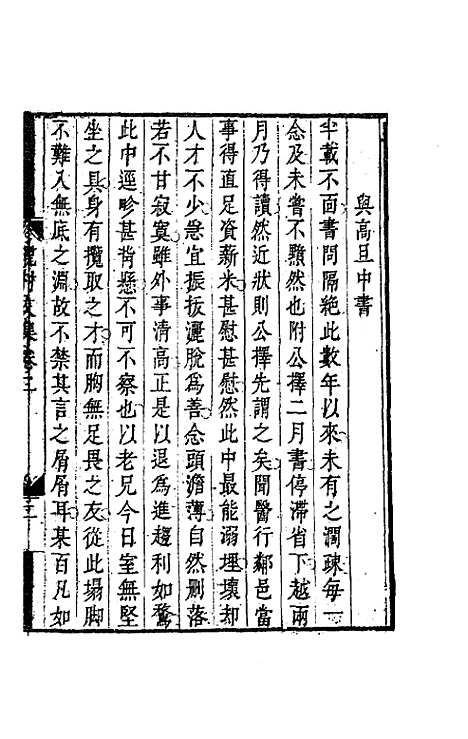 與高旦中書
半載不面書問隔絶此數年以來未有之濶疎每一
念及未嘗不黯然也附公擇二月書停滯省下越兩
月乃得讀然近狀則公擇先謂之矣聞醫行鄰邑當
事得直足資薪米甚慰甚慰然此中最能溺埋壞却
人才不少急宜振抜灑脫為善念頭澹薄自然删落
若不甘寂寞雖外事清高正是以退為進趨利如騖
此中逕畛甚背懸不可不察也以老兄今日室無堅
坐之具身有攬取之才而胸無足畏之友從此塌脚
不難入無底之淵故不禁其言之屑屑耳某百凡如